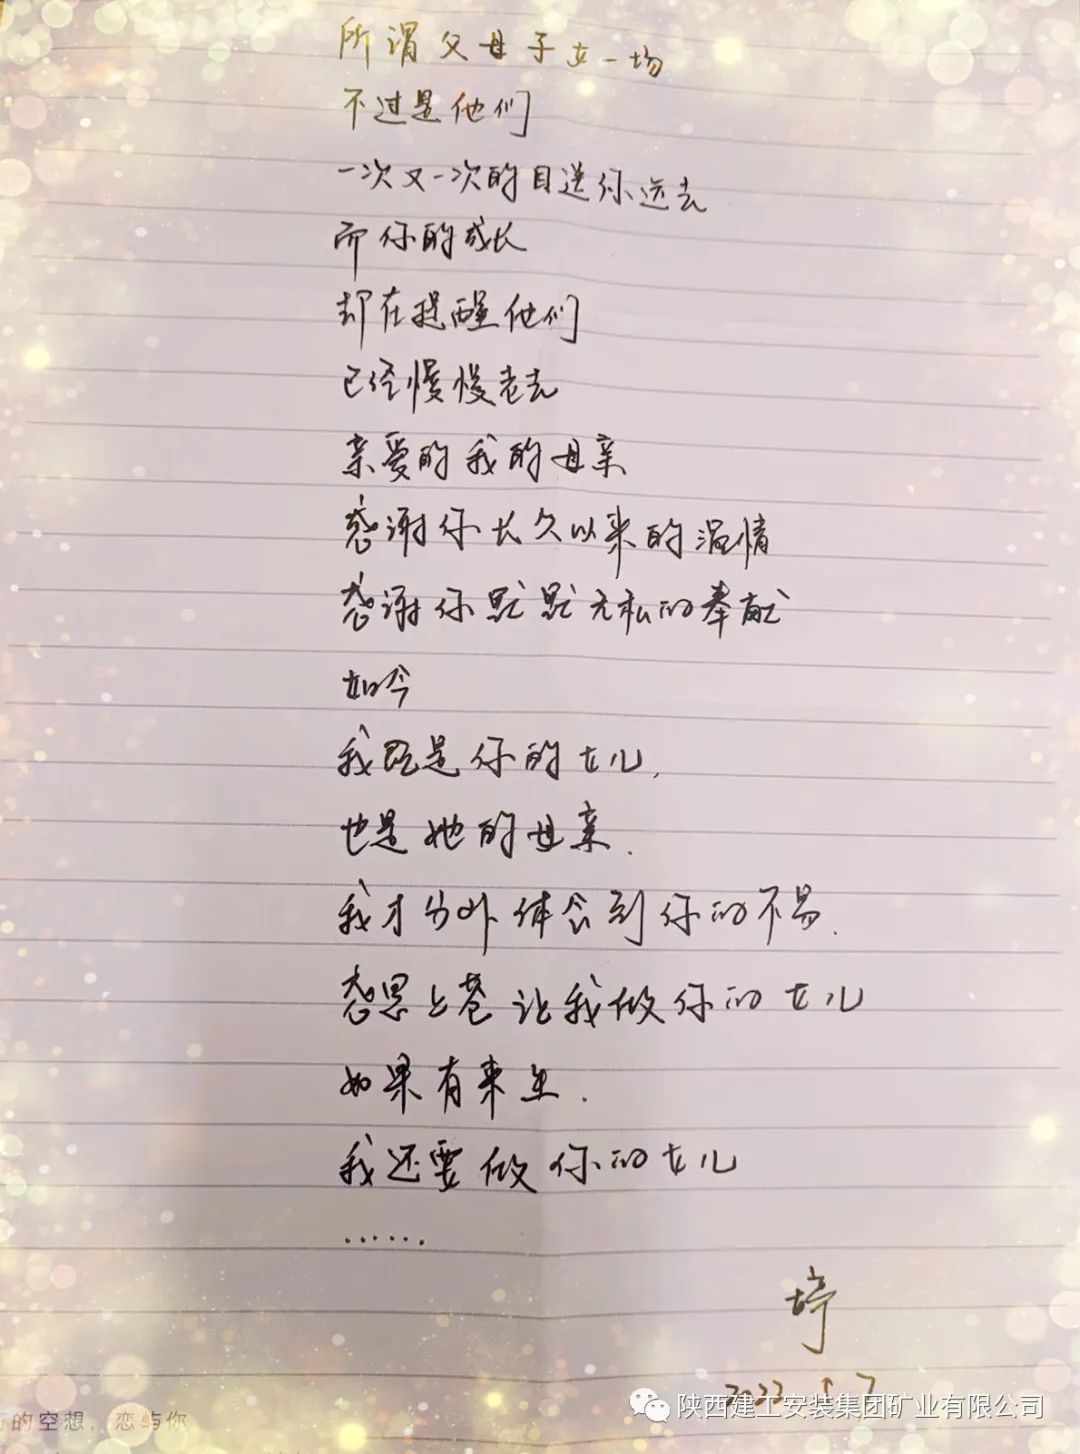 所谓父母子女一场
不过是他们
一次又一次的目送你远去
而你的成长
却在提醒他们
已经慢慢老去
亲爱的我的母亲
感谢你长久以来的温情
感谢你默默无私的奉献
如今
我既是你的女儿,
也是她的母亲.
我才分外体会到你的不易.
感恩上苍让我做你的女儿
如果有来生.
我还要做你的女儿
……
婷
2022
的空想，恋屿你
陕西建工安装集团矿业有限公司